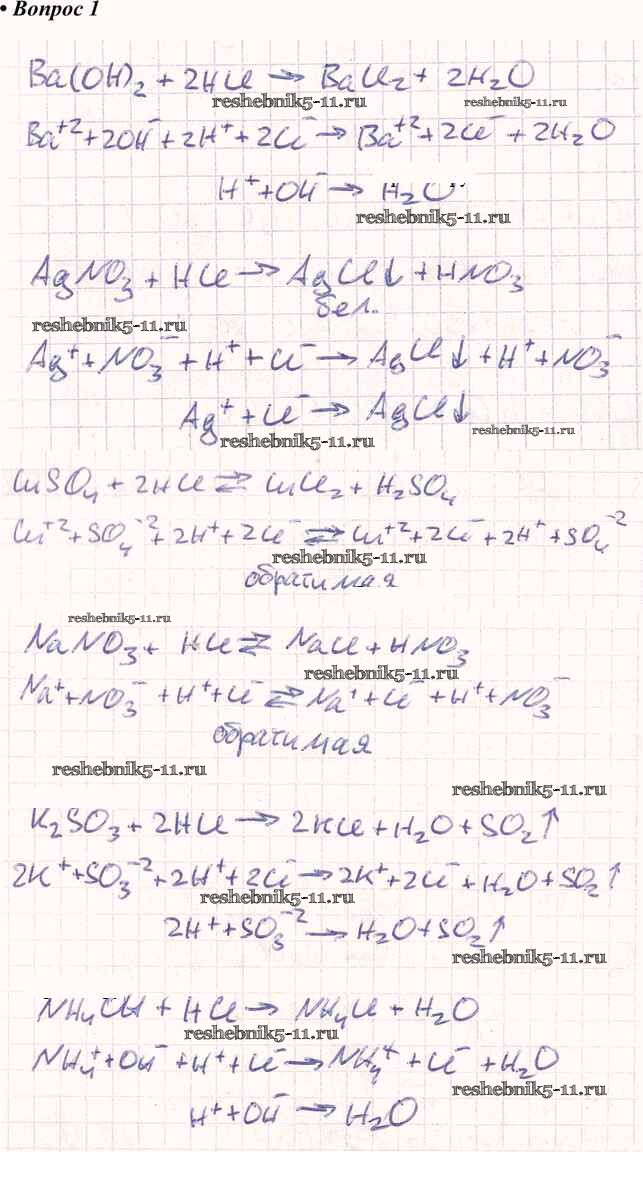 • Вопрос 1
Ba(OH)₂ + 2HCl → BaCl₂ + 2H₂O
reshebnik5-11.ru reshebnik5-11.ru
Ba⁺² + 2OH⁻ + 2H⁺ + 2Cl⁻ → Ba⁺² + 2Cl⁻ + 2H₂O
H⁺ + OH⁻ → H₂O
reshebnik5-11.ru
AgNO₃ + HCl → AgCl↓ + HNO₃
бел.
reshebnik5-11.ru
Ag⁺ + NO₃⁻ + H⁺ + Cl⁻ → AgCl↓ + H⁺ + NO₃⁻
Ag⁺ + Cl⁻ → AgCl↓
reshebnik5-11.ru reshebnik5-11.ru
CuSO₄ + 2HCl ⇄ CuCl₂ + H₂SO₄
Cu⁺² + SO₄⁻² + 2H⁺ + 2Cl⁻ ⇄ Cu⁺² + 2Cl⁻ + 2H⁺ + SO₄⁻²
reshebnik5-11.ru
обратимая
reshebnik5-11.ru
NaNO₃ + HCl ⇄ NaCl + HNO₃
reshebnik5-11.ru
Na⁺ + NO₃⁻ + H⁺ + Cl⁻ ⇄ Na⁺ + Cl⁻ + H⁺ + NO₃⁻
обратимая
reshebnik5-11.ru
reshebnik5-11.ru
K₂SO₃ + 2HCl → 2KCl + H₂O + SO₂↑
2K⁺ + SO₃⁻² + 2H⁺ + 2Cl⁻ → 2K⁺ + 2Cl⁻ + H₂O + SO₂↑
reshebnik5-11.ru
2H⁺ + SO₃⁻² → H₂O + SO₂↑
reshebnik5-11.ru
NH₄OH + HCl → NH₄Cl + H₂O
reshebnik5-11.ru
NH₄⁺ + OH⁻ + H⁺ + Cl⁻ → NH₄⁺ + Cl⁻ + H₂O
reshebnik5-11.ru
H⁺ + OH⁻ → H₂O